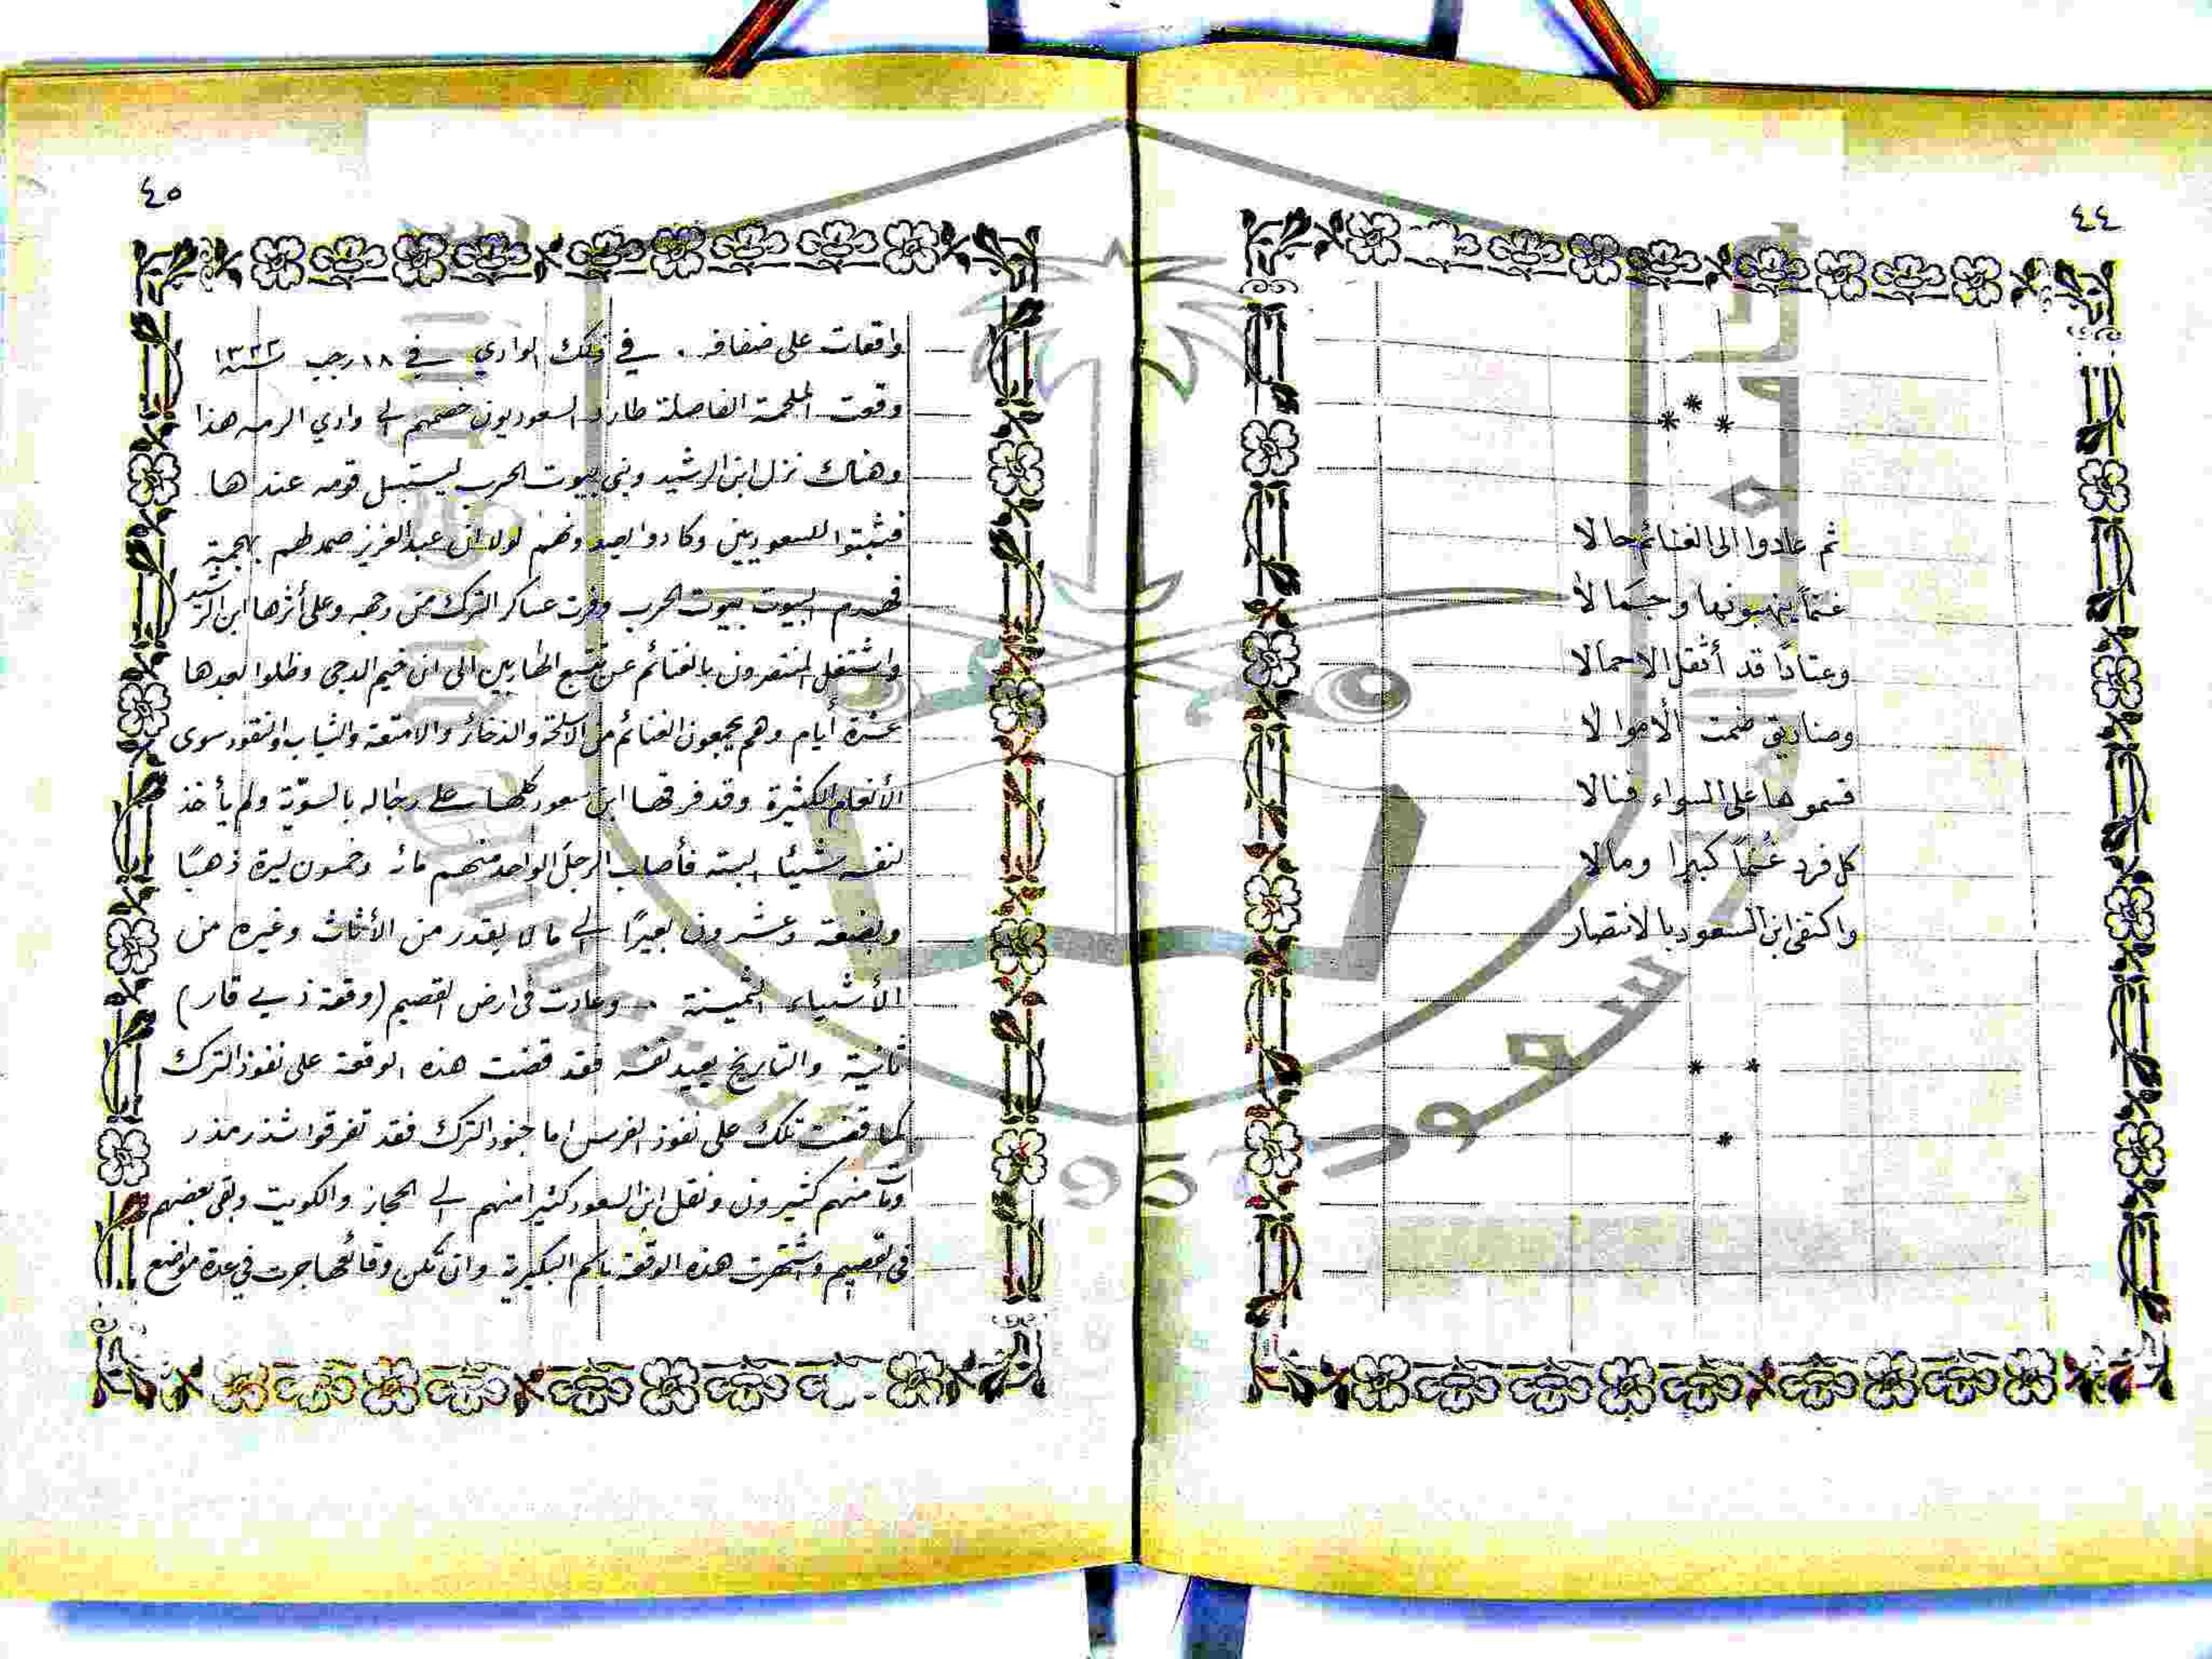 ٤٤
* * *
ثم عادوا الى الغنائم حالا
غنماً ينهبونها وجمالا
وعتادًا قد أثقل الاحمالا
وصناديق ضمت الأموالا
قسموها على السواء فنالا
كل فرد غنماً كبيرا ومالا
واكتفى ابن السعود بالانتصار
* *
*
٤٥
واقعات على ضفافه . في ذلك الوادي في ١٨ رجب سنة ١٣٢٢
وقعت الملحمة الفاصلة طارد السعوديون خصمهم الى وادي الرمه هذا
وهناك نزل ابن الرشيد وبنى بيوت الحرب ليستبسل قومه عندها
فثبتوا للسعوديين وكادوا يصدونهم لولا ان عبدالعزيز صمد لهم بهجمة
فهدم البيوت بيوت الحرب وفرت عساكر الترك من وجهه وعلى أثرها ابن الرشيد
واشتغل المنتصرون بالغنائم عن تتبع الهاربين الى ان خيم الدجى وظلوا بعدها
عشرة أيام وهم يجمعون الغنائم من الاسلحة والذخائر والامتعة والثياب والنقود سوى
الأنعام الكثيرة وقد فرقها ابن سعود كلها على رجاله بالسويّة ولم يأخذ
لنفسه شيئا البته فأصاب الرجل الواحد منهم مائة وخمسون ليرة ذهبًا
وبضعة وعشرون بعيرًا الى ما لا يقدر من الأثاث وغيره من
الأشياء الثمينة . وعادت في ارض القصيم (وقعة ذي قار)
ثانية والتاريخ يعيد نفسه فقد قضت هذه الوقعة على نفوذ الترك
كما قضت تلك على نفوذ الفرس اما جنود الترك فقد تفرقوا شذر مذر
ومات منهم كثيرون ونقل ابن السعود كثيرا منهم الى الحجاز والكويت وبقى بعضهم
فى القصيم واشتهرت هذه الوقعة باسم البكيرية وان تكن وقائعها جرت في عدة مواضع